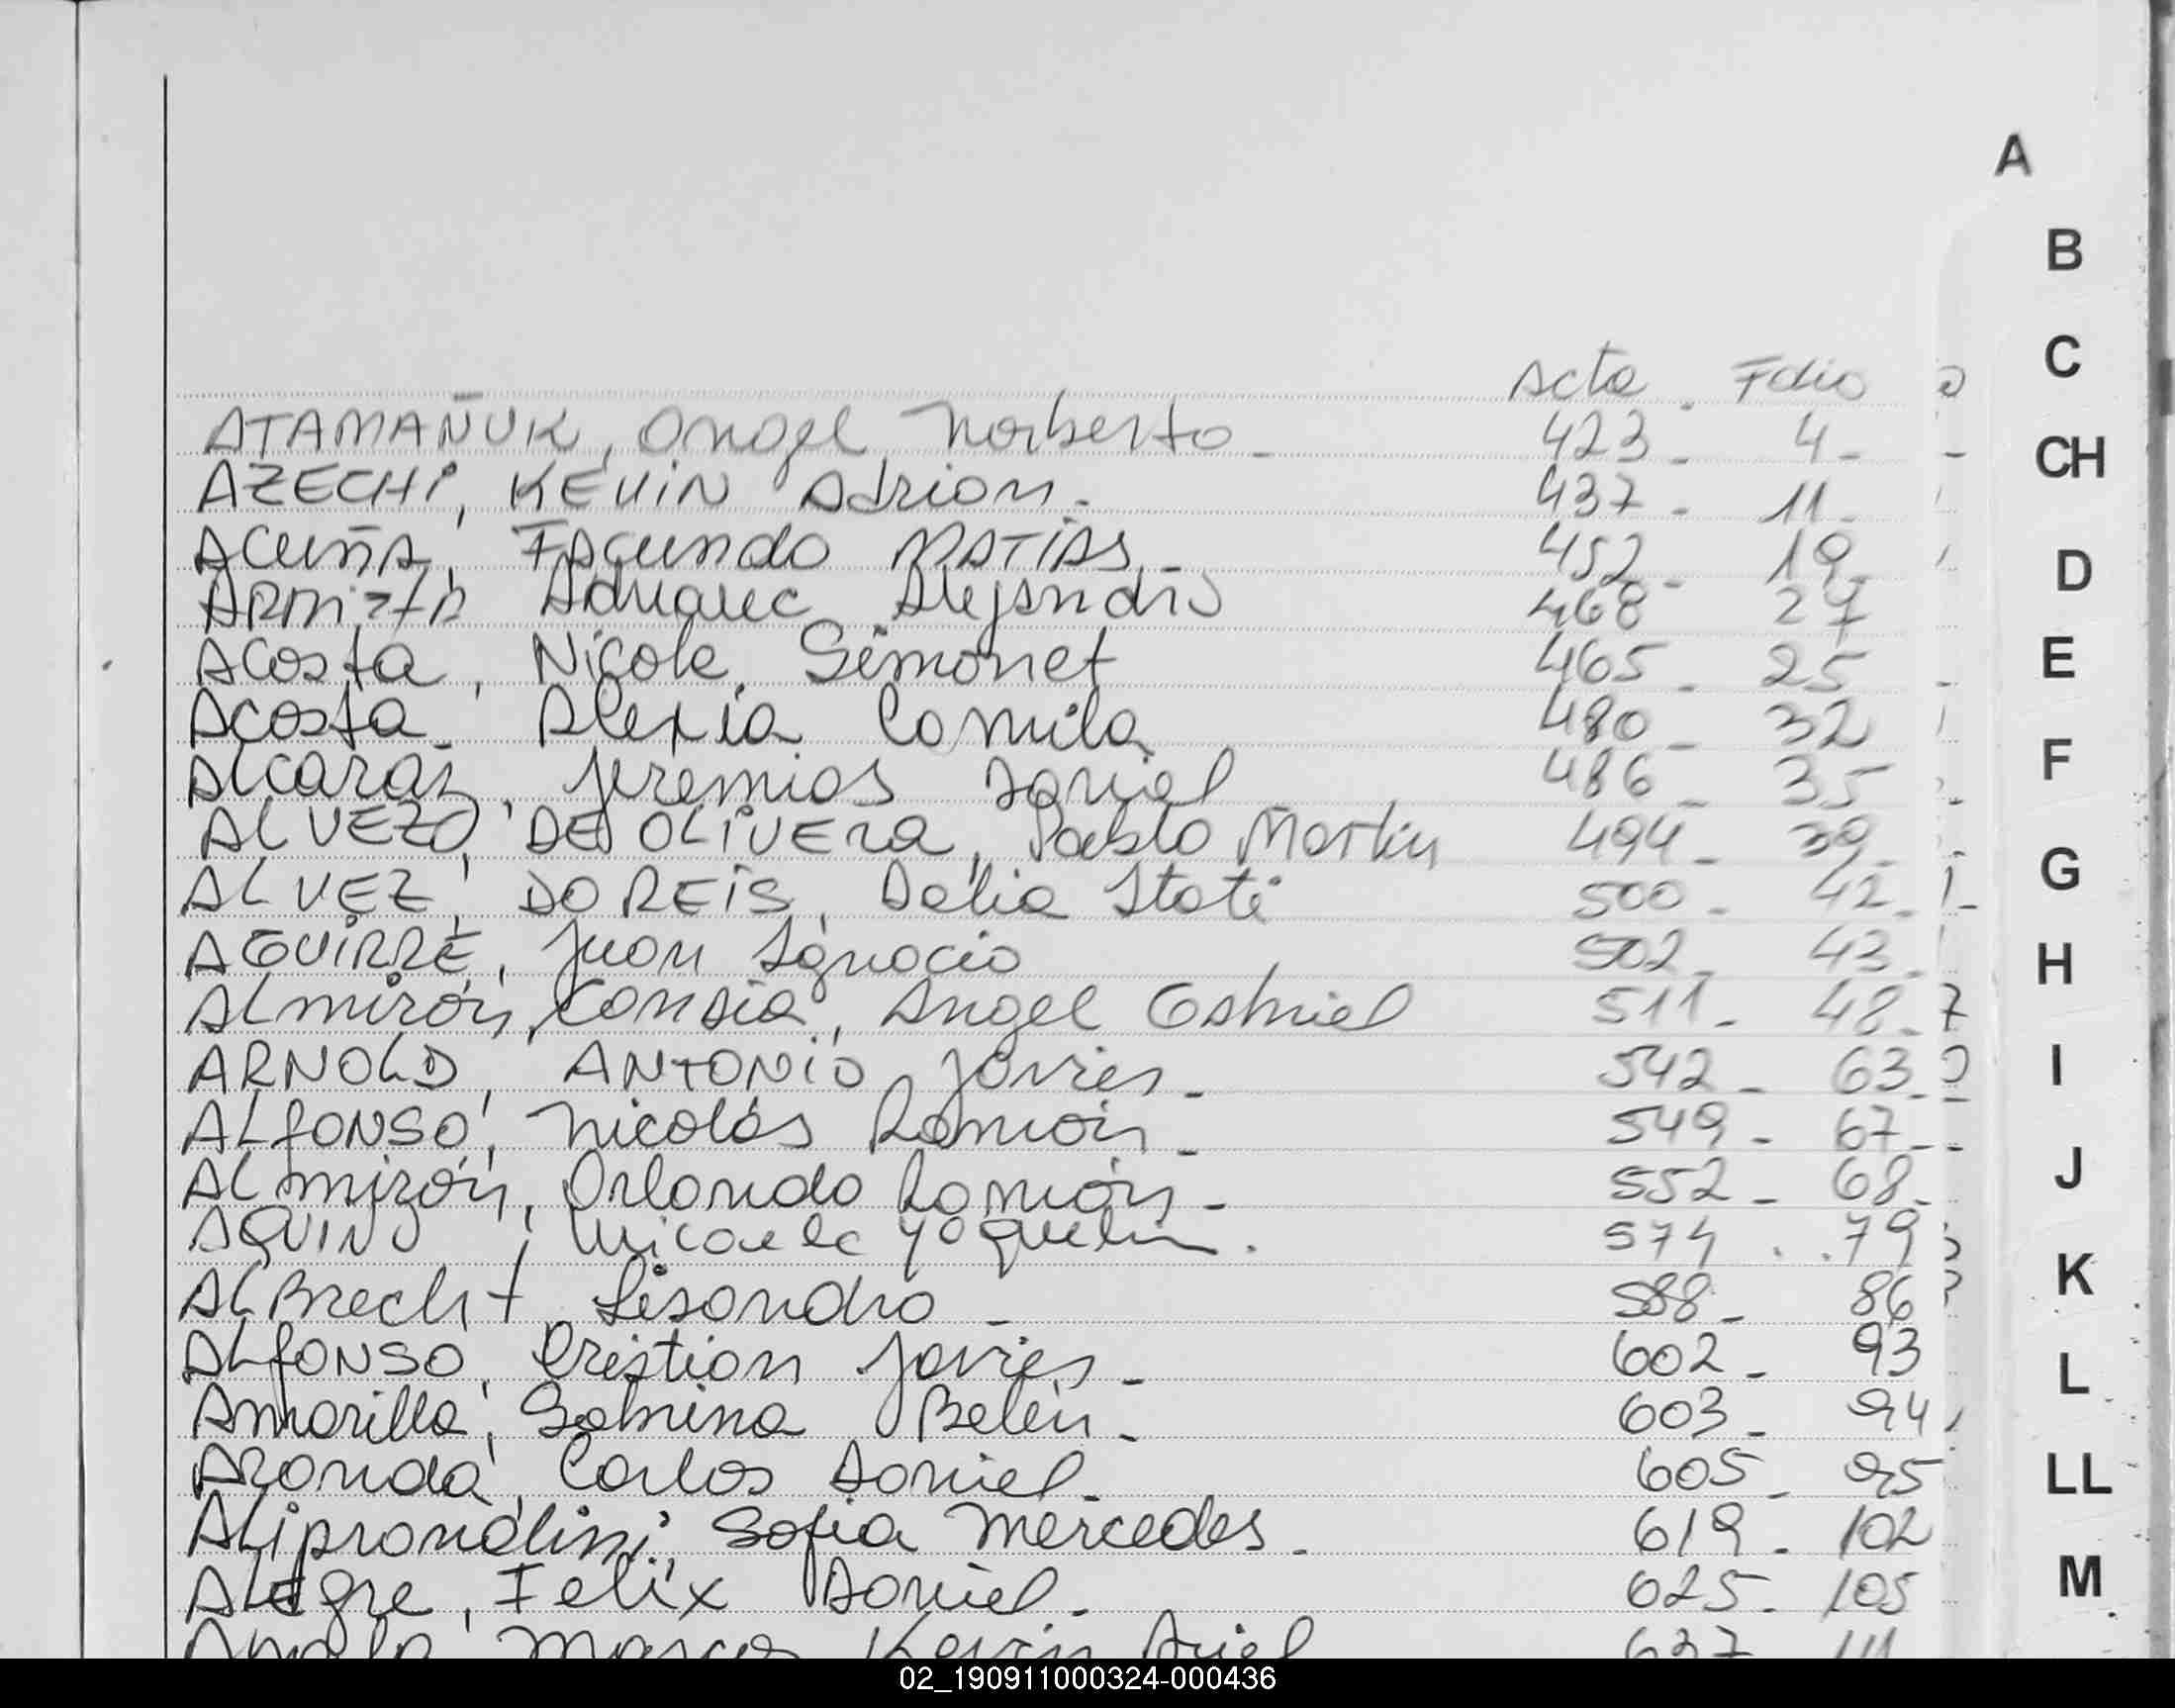 A
B
C
Acta - Folio
ATAMAÑUK, Angel Norberto - 423 - 4 -
CH
AZECHI, KEVIN Adrian - 437 - 11 -
ACUÑA, FACUNDO MATIAS - 452 - 19 -
D
Alejandro 468 - 27
ACosta, Nicole Simonet 465 - 25
E
Acosta Alexia Camila 480 - 32
F
Alcaraz, Jeremias Daniel 486 - 35
ALVEZ, DE OLIVERA, Pablo Martin 494 - 39 -
G
ALVEZ, DO REIS, Dalia 500 - 42 -
AGUIRRE, Juan Ignacio 502 - 43 -
H
ALmirón, Angel Gabriel 511 - 48 -
ARNOLD, ANTONIO Javier - 542 - 63 -
I
ALFONSO, Nicolás Ramón - 549 - 67 -
J
ALmirón, Orlando Ramón - 552 - 68 -
AQUINO, Micaela Yaquelin . 574 . . 79
K
ALBrecht Lisandro - 588 - 86
ALFONSO, Cristian Javier - 602 - 93
L
Amarilla, Sabrina Belén - 603 - 94
Aranda, Carlos Daniel - 605 - 95
LL
ALiprandini, Sofia Mercedes - 619 - 102
M
ALEgre, Felix Daniel - 625 - 105
Marcos Kevin Ariel 637 111
02_190911000324-000436